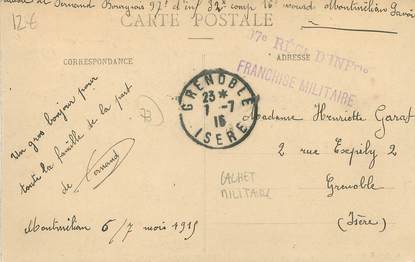 12€
de Fernand Bourgeois 97e d'inf 32e comp Montmélian Savoie
CARTE POSTALE
CORRESPONDANCE
ADRESSE
97e RÉGt D'INFie
FRANCHISE MILITAIRE
GRENOBLE
23 *
7 - 7
15
ISERE
73
Un gros bonjour pour
toute la famille de la part
de Fernand
Montmélian 6/7 mois 1915
Madame Henriette Garat
2 rue Expilly 2
Grenoble
(Isère)
CACHET
MILITAIRE